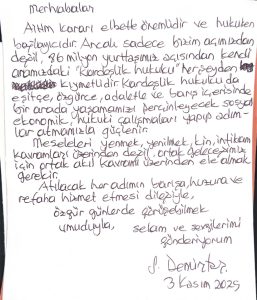 Merhabalar
AİHM kararı elbette önemlidir ve hukuken
bağlayıcıdır. Ancak sadece bizim açımızdan
değil, 86 milyon yurttaşımız açısından kendi
aramızdaki "Kardeşlik hukuku" herşeyden
kıymetlidir. Kardeşlik hukuku da
eşitçe, özgürce, adaletle ve barış içerisinde
bir arada yaşamamızı perçinleyecek sosyal
ekonomik, hukuki çalışmaları yapıp adım-
lar atmamızla güçlenir.
Meseleleri yenmek, yenilmek, kin, intikam
kavramları üzerinden değil, ortak geleceğimiz
için ortak akıl kavramı üzerinden ele almak
gerekir.
Atılacak her adımın barışa, huzura ve
refaha hizmet etmesi dileğiyle,
özgür günlerde görüşebilmek
umuduyla, selam ve sevgilerimi
gönderiyorum
S. Demirtaş
3 Kasım 2025